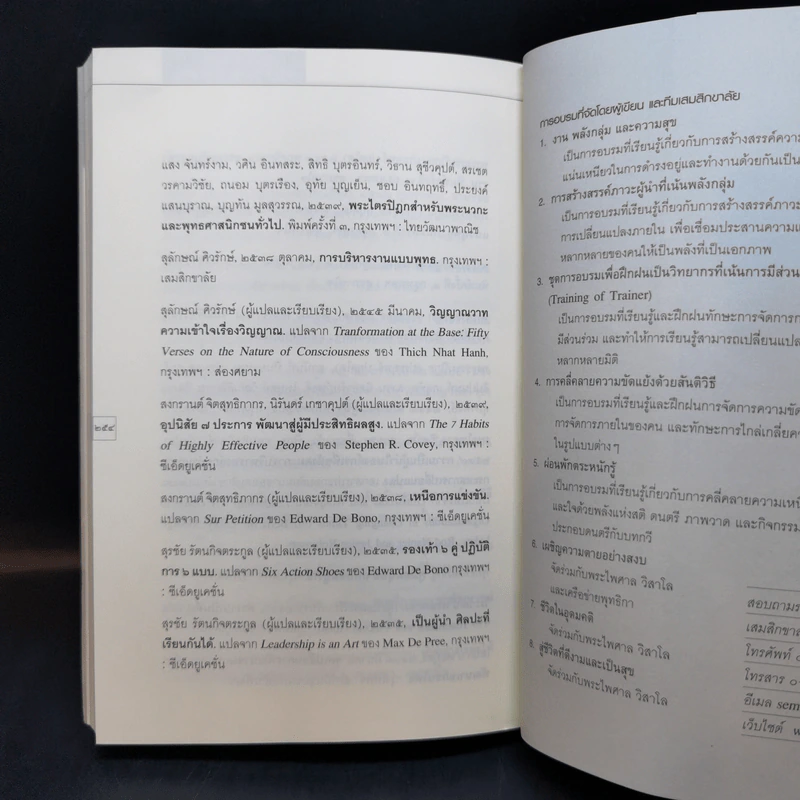 แสง จันทร์งาม, วศิน อินทสระ, สิทธิ บุตรอินทร์, วิธาน สุชีวคุปต์, สรเชต
วรคามวิชัย, ถนอม บุตรเรือง, อุทัย บุญเย็น, ชอบ อินทฤทธิ์, ประยงค์
แสนบุราณ, บุญทัน มูลสุวรรณ, ๒๕๓๙, พระไตรปิฎกสำหรับพระนวกะ
และพุทธศาสนิกชนทั่วไป. พิมพ์ครั้งที่ ๓, กรุงเทพฯ : ไทยวัฒนาพาณิช
สุลักษณ์ ศิวรักษ์, ๒๕๓๘ ตุลาคม, การบริหารงานแบบพุทธ. กรุงเทพฯ :
เสมสิกขาลัย
สุลักษณ์ ศิวรักษ์ (ผู้แปลและเรียบเรียง), ๒๕๔๕ มีนาคม, วิญญาณวาท
ความเข้าใจเรื่องวิญญาณ. แปลจาก Tranformation at the Base: Fifty
Verses on the Nature of Consciousness ของ Thich Nhat Hanh,
กรุงเทพฯ : ส่องศยาม
สงกรานต์ จิตสุทธิภากร, นิรันดร์ เกชาคุปต์ (ผู้แปลและเรียบเรียง), ๒๕๓๙,
อุปนิสัย ๗ ประการ พัฒนาสู่ผู้มีประสิทธิผลสูง. แปลจาก The 7 Habits
of Highly Effective People ของ Stephen R. Covey, กรุงเทพฯ :
ซีเอ็ดยูเคชั่น
๒๕๔
สงกรานต์ จิตสุทธิภากร (ผู้แปลและเรียบเรียง), ๒๕๓๘, เหนือการแข่งขัน.
แปลจาก Sur Petition ของ Edward De Bono, กรุงเทพฯ : ซีเอ็ดยูเคชั่น
สุรชัย รัตนกิจตระกูล (ผู้แปลและเรียบเรียง), ๒๕๓๕, รองเท้า ๖ คู่ ปฏิบัติ
การ ๖ แบบ. แปลจาก Six Action Shoes ของ Edward De Bono กรุงเทพฯ
: ซีเอ็ดยูเคชั่น
สุรชัย รัตนกิจตระกูล (ผู้แปลและเรียบเรียง), ๒๕๓๕, เป็นผู้นำ ศิลปะที่
เรียนกันได้. แปลจาก Leadership is an Art ของ Max De Pree, กรุงเทพฯ
: ซีเอ็ดยูเคชั่น
การอบรมที่จัดโดยผู้เขียน และทีมเสมสิกขาลัย
๑. งาน พลังกลุ่ม และความสุข
เป็นการอบรมที่เรียนรู้เกี่ยวกับการสร้างสรรค์ความ
แน่นเหนียวในการดำรงอยู่และทำงานด้วยกันเป็น
๒. การสร้างสรรค์ภาวะผู้นำที่เน้นพลังกลุ่ม
เป็นการอบรมที่เรียนรู้เกี่ยวกับการสร้างสรรค์ภาวะ
การเปลี่ยนแปลงภายใน เพื่อเชื่อมประสานความแ
หลากหลายของคนให้เป็นพลังที่เป็นเอกภาพ
๓. ชุดการอบรมเพื่อฝึกฝนเป็นวิทยากรที่เน้นการมีส่วน
(Training of Trainer)
เป็นการอบรมที่เรียนรู้และฝึกฝนทักษะการจัดการก
มีส่วนร่วม และทำให้การเรียนรู้สามารถเปลี่ยนแปล
หลากหลายมิติ
๔. การคลี่คลายความขัดแย้งด้วยสันติวิธี
เป็นการอบรมที่เรียนรู้และฝึกฝนการจัดการความขัด
การจัดการภายในของคน และทักษะการไกล่เกลี่ยค
ในรูปแบบต่าง ๆ
๕. ผ่อนพักตระหนักรู้
เป็นการอบรมที่เรียนรู้เกี่ยวกับการคลี่คลายความเหนื
และใจด้วยพลังแห่งสติ ดนตรี ภาพวาด และกิจกรรม
ประกอบดนตรีกับบทกวี
๖. เผชิญความตายอย่างสงบ
จัดร่วมกับพระไพศาล วิสาโล
และเครือข่ายพุทธิกา
๗. ชีวิตในอุดมคติ
จัดร่วมกับพระไพศาล วิสาโล
๘. สู่ชีวิตที่ดีงามและเป็นสุข
จัดร่วมกับพระไพศาล วิสาโล
สอบถามร
เสมสิกขาล
โทรศัพท์ ๐
โทรสาร ๐-
อีเมล sem
เว็บไซต์ w